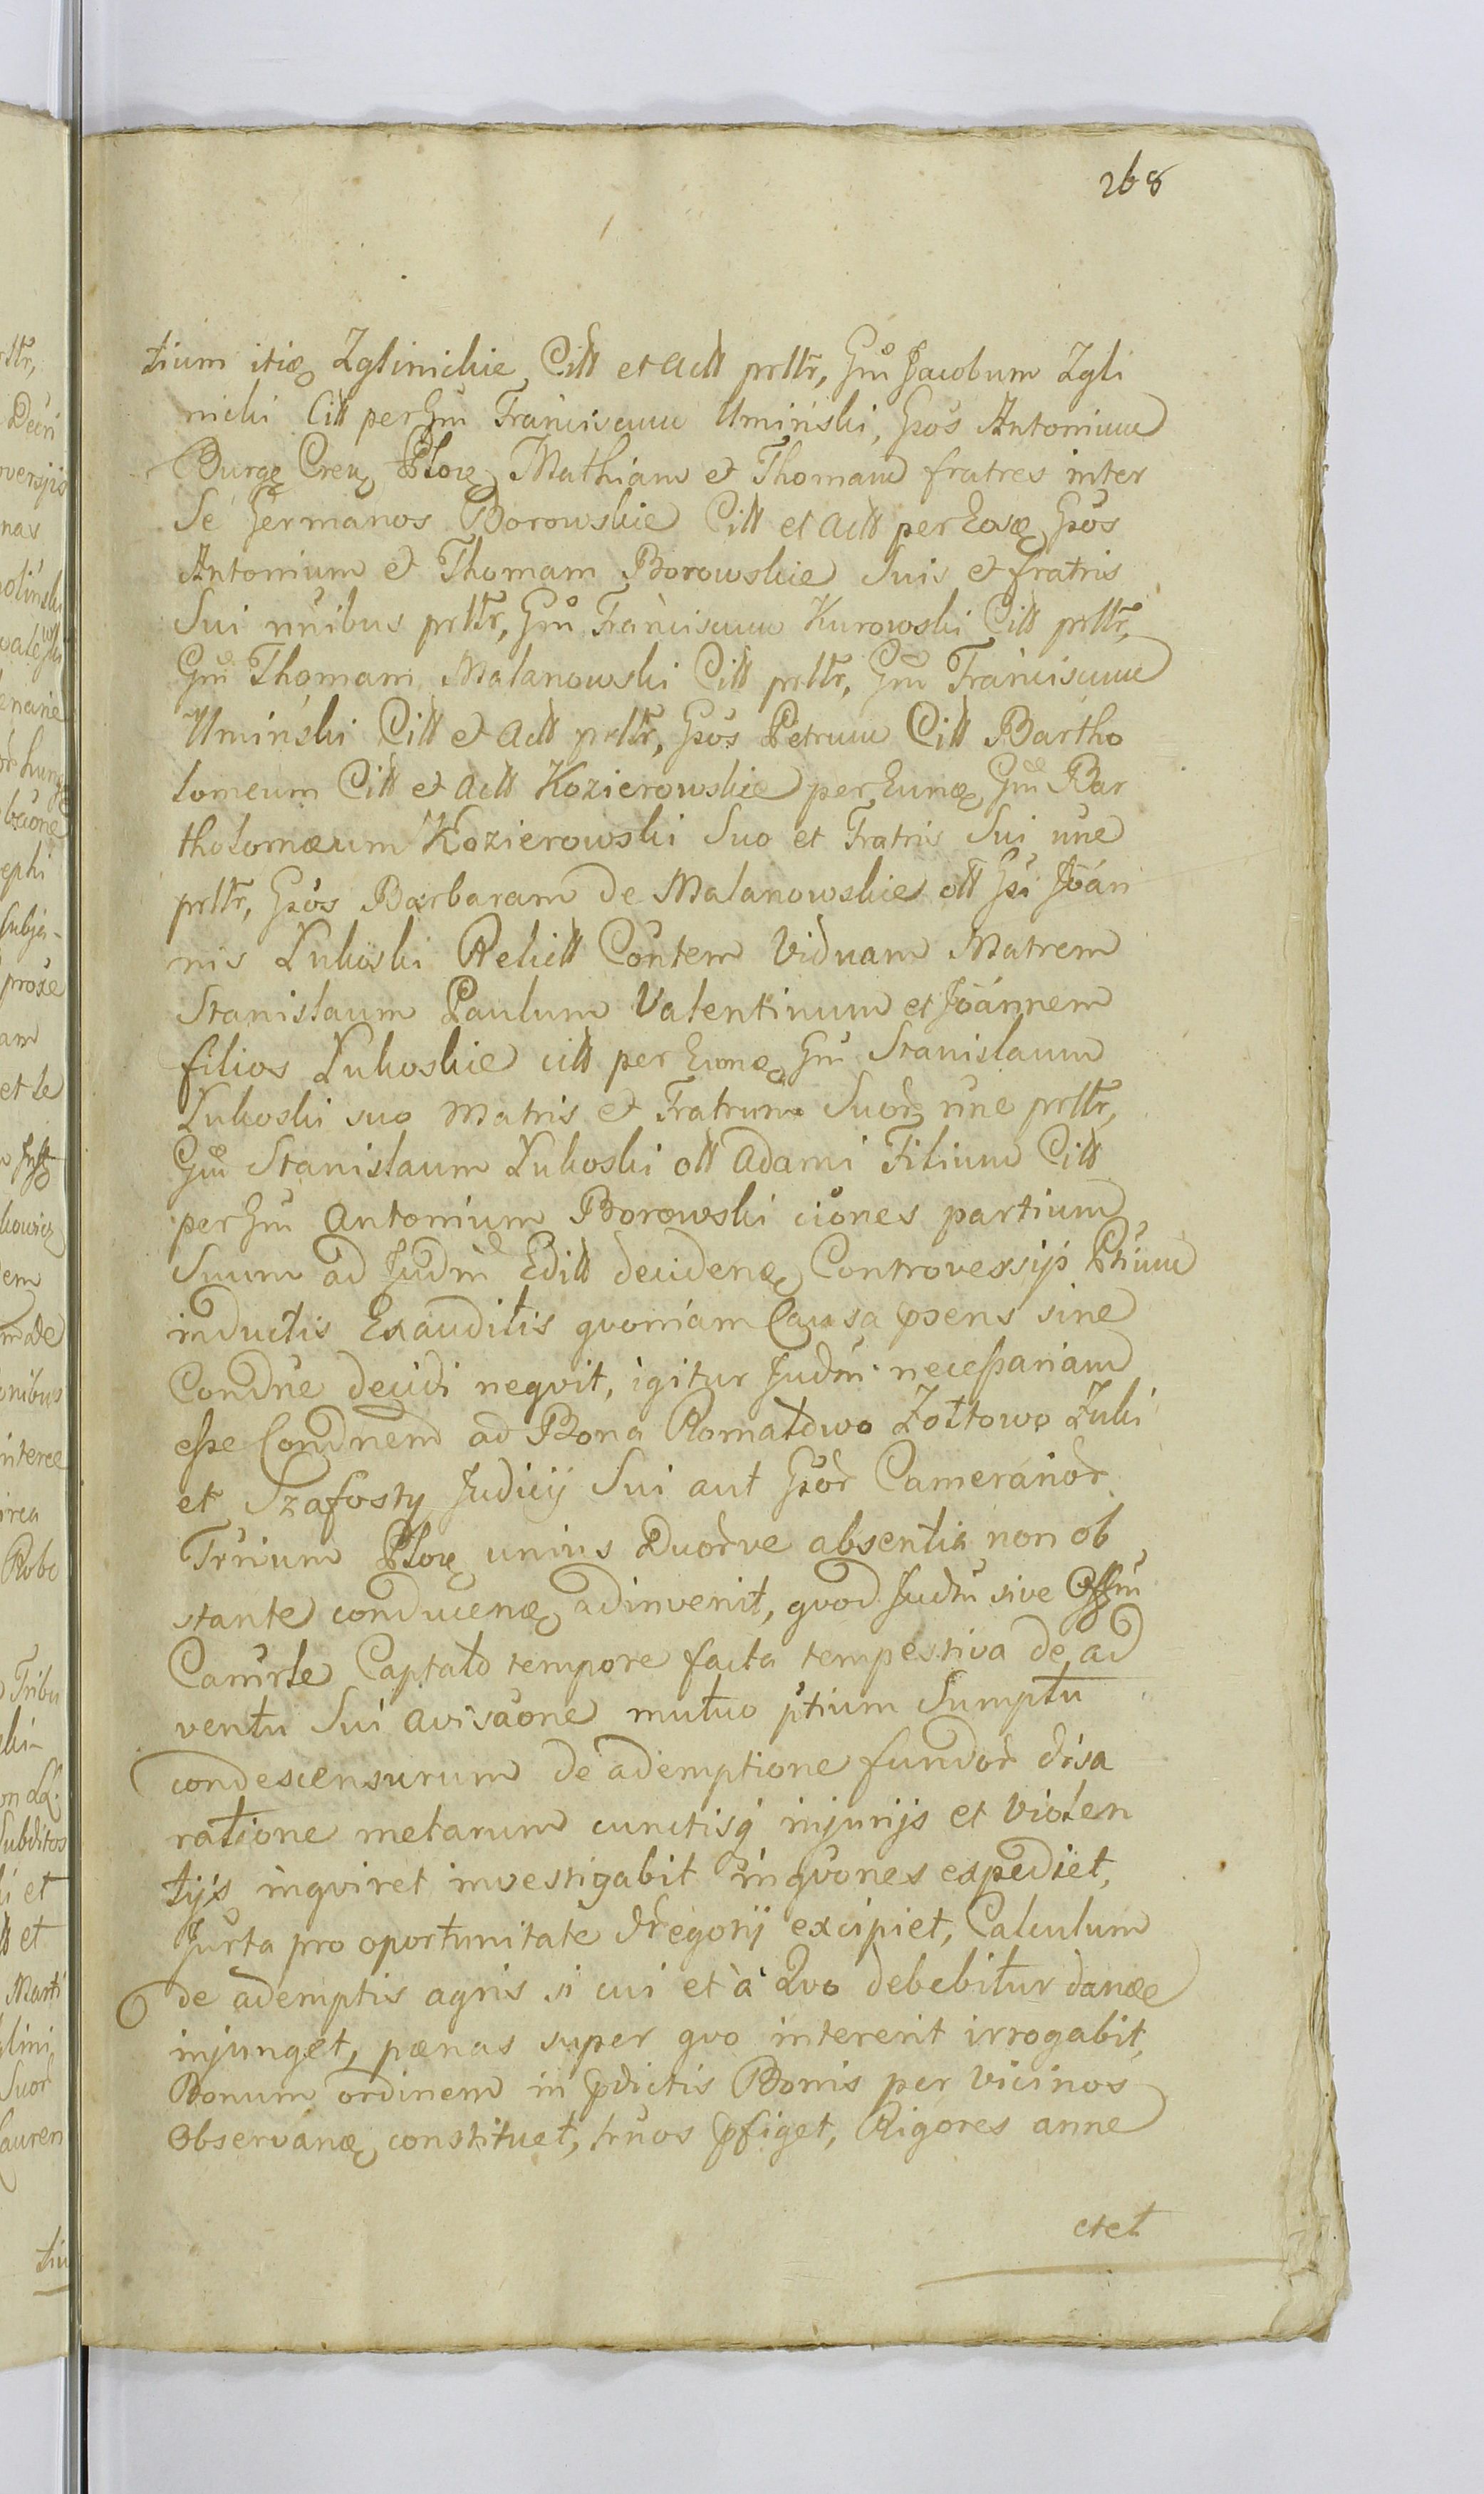 268
tium itiq Zglinickie Citt et actt prttr, Gnu Jacobum Zgli
nicki Citt per Gnu Franciscum Uminski, Gsos Antonium
Burgę Creu Ploę Mathiam et Thomam fratres inter
Se Germanos Borowskie Citt et actt per Eosq Gsos
Antonium et Thomam Borowskie Suis et fratris
Sui nnibus prttr, Gnu Franciscum Kurowski Citt prttr,
Gnu Thomam Malanowski Citt prttr, Gnu Franciscum
Uminski Citt et actt prttr, Gsos Petrum Citt Bartho
lomeum Citt et actt Kozierowskie per Eunq Gnu Bar
tholomæum Kozierowski Suo et Fratris Sui nne
prttr, Gsos Barbaram de Malanowskie ott Gsi Joan
nis Lukoski Relictt Contem Viduam Matrem
Stanislaum Paulum Valentinum et Joannem
filios Lukoskie citt per Eunq Gnu Stanislaum
Lukoski suo Matris et Fratrum Suor nne prttr,
Gnu Stanislaum Lukoski ott Adami Filium Citt
per Gnu Antonium Borowski ciones partium
Suum ad Judm Editt decidenq Controversijs Ptium
inductis Exauditis qvoniam Causa psens sine
Condne decidi neqvit, igitur Judm necessariam
esse Condnem ad Bona Romatowo Zołtowo Zuki
et Szafosty Judicij Sui aut Gsor Camerarior
Trrium Ploę unius Duorve absentia non ob
stante conducenq adinvenit, qvod Judm sive Offm
Camrle Captato tempore facta tempestiva de ad
ventu Sui avisaone mutuo ptium Sumptu
condescensurum de ademptione fundor disa
ratione metarum cunctisq injurijs et violen
tijs inqviret investigabit inqvones expediet,
Jurta pro oportunitate Negotij excipiet, Calculum
de ademptis agris si cui et à Qvo debebitur danq
injunget, pænas super qvo intererit irrogabit,
Bonum ordinem in pdictis Bonis per vicinos
Observanq constituet, trnos pfiget, Rigores anne
ctet